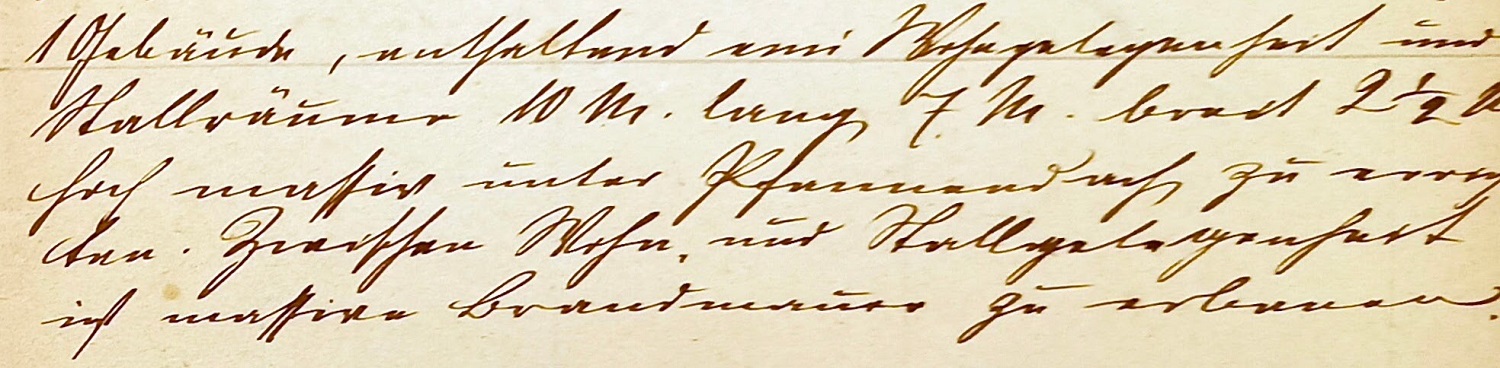 1 Gebäude, enthaltend eine Wohngelegenheit und
Stallräume 10 M. lang 7 M. breit 2 1/2 M
hoch massiv unter Pfannendach zu errich
ten. Zwischen Wohn- und Stallgelegenheit
ist massive Brandmauer zu erbauen.